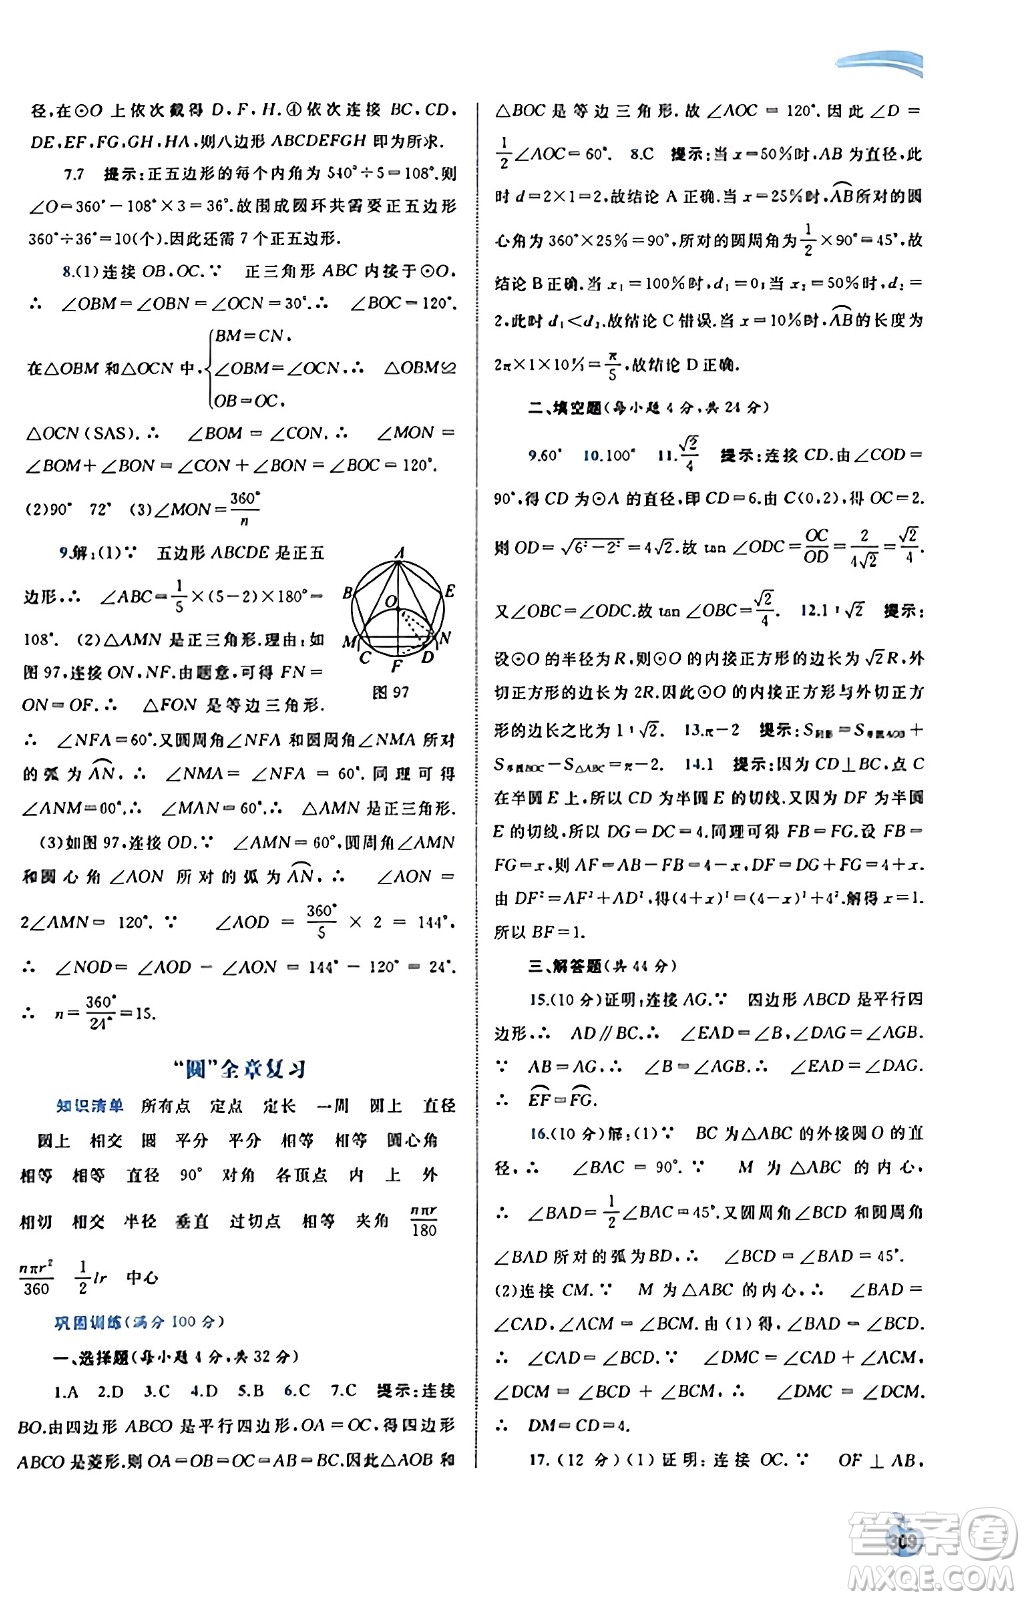 径,在⊙O 上依次截得 D,F,H.④依次连接 BC,CD,
DE,EF,FG,GH,HA,则八边形 ABCDEFGH 即为所求.
7.7 提示:正五边形的每个内角为 540°÷5=108°,则
∠O=360°-108°×3=36°.故围成圆环共需要正五边形
360°÷36°=10(个).因此还需 7 个正五边形.
8.(1)连接 OB,OC.∵ 正三角形 ABC 内接于⊙O,
∴ ∠OBM=∠OBN=∠OCN=30°,∠BOC=120°.
在△OBM 和△OCN 中,{BM=CN, ∠OBM=∠OCN, OB=OC, ∴ △OBM≌
△OCN(SAS).∴ ∠BOM=∠CON.∴ ∠MON=
∠BOM+∠BON=∠CON+∠BON=∠BOC=120°.
(2)90° 72° (3)∠MON=360°/n
9.解:(1)∵ 五边形 ABCDE 是正五
边形,∴ ∠ABC=1/5×(5-2)×180°=
108°. (2)△AMN 是正三角形.理由:如
图 97,连接 ON,NF.由题意,可得 FN=
ON=OF.∴ △FON 是等边三角形.
A B E O M N C F D
图 97
∴ ∠NFA=60°.又圆周角∠NFA 和∠NMA 所对
的弧为⌒AN,∴ ∠NMA=∠NFA=60°.同理可得
∠ANM=60°.∴ ∠MAN=60°.∴ △AMN 是正三角形.
(3)如图 97,连接 OD.∵ ∠AMN=60°,圆周角∠AMN
和圆心角 ∠AON 所对的弧为 ⌒AN,∴ ∠AON =
2∠AMN=120°.∵ ∠AOD = 360°/5 × 2 = 144°,
∴ ∠NOD=∠AOD - ∠AON = 144°-120°=24°.
∴ n=360°/24°=15.
“圆”全章复习
知识清单 所有点 定点 定长 一周 圆上 直径
圆上 相交 圆 平分 平分 相等 相等 圆心角
相等 相等 直径 90° 对角 各顶点 内 上 外
相切 相交 半径 垂直 过切点 相等 夹角 nπr/180
nπr²/360 1/2lr 中心
巩固训练(满分 100 分)
一、选择题(每小题 4 分,共 32 分)
1.A 2.D 3.C 4.D 5.B 6.C 7.C 提示:连接
BO.由四边形 ABCO 是平行四边形,OA=OC,得四边形
ABCO 是菱形,因此 OA=OB=OC=AB=BC.因此△AOB 和
△BOC 是等边三角形.故∠AOC=120°,因此∠D=
1/2∠AOC=60°. 8.C 提示:当 x=50%时,AB 为直径,此
时 d=2×1=2,故结论 A 正确.当 x=25%时,⌒AB所对的圆
心角为 360°×25%=90°,所对的圆周角为1/2×90°=45°,故
结论 B 正确.当 x₁=100%时,d₁=0;当 x₂=50%时,d₂=
2,此时 d₁<d₂.故结论 C 错误.当 x=10%时,⌒AB的长度为
2π×1×10%=π/5,故结论 D 正确.
二、填空题(每小题 4 分,共 24 分)
9.60° 10.100° 11.√2/4 提示:连接 CD.由∠COD=
90°,得 CD 为⊙A 的直径,即 CD=6.由 C(0,2),得 OC=2.
则 OD=√6²-2²=4√2.故 tan ∠ODC=OC/OD=2/4√2=√2/4.
又∠OBC=∠ODC,故 tan ∠OBC=√2/4. 12.1∶√2 提示:
设⊙O 的半径为 R,则⊙O 的内接正方形的边长为√2R,外
切正方形的边长为 2R.因此⊙O 的内接正方形与外切正方
形的边长之比为 1∶√2. 13.π-2 提示:S阴影=S半圆AOB+
S半圆BOC-S△ABC=π-2. 14.1 提示:因为 CD⊥BC,点 C
在半圆 E 上,所以 CD 为半圆 E 的切线.又因为 DF 为半圆
E 的切线,所以 DG=DC=4.同理可得 FB=FG.设 FB=
FG=x,则 AF=AB-FB=4-x,DF=DG+FG=4+x.
由 DF²=AF²+AD²,得(4+x)²=(4-x)²+4².解得 x=1.
所以 BF=1.
三、解答题(共 44 分)
15.(10 分)证明:连接 AG.∵ 四边形 ABCD 是平行四
边形,∴ AD∥BC.∴ ∠EAD=∠B,∠DAG=∠AGB.
∵ AB=AG,∴ ∠B=∠AGB.∴ ∠EAD=∠DAG.
∴ ⌒EF=⌒FG.
16.(10 分)解:(1)∵ BC 为△ABC 的外接圆 O 的直
径,∴ ∠BAC = 90°.∵ M 为△ABC 的内心,
∴ ∠BAD=1/2∠BAC=45°.又圆周角∠BCD和圆周角
∠BAD 所对的弧为BD,∴ ∠BCD=∠BAD=45°.
(2)连接 CM.∵ M 为△ABC 的内心,∴ ∠BAD=
∠CAD,∠ACM=∠BCM.由(1)得,∠BAD=∠BCD,
∴ ∠CAD=∠BCD.∵ ∠DMC=∠CAD+∠ACM,
∠DCM = ∠BCD + ∠BCM,∴ ∠DMC = ∠DCM.
∴ DM=CD=4.
17.(12 分)(1)证明:连接 OC.∵ OF⊥AB,
309
答案圈
MXQE.COM